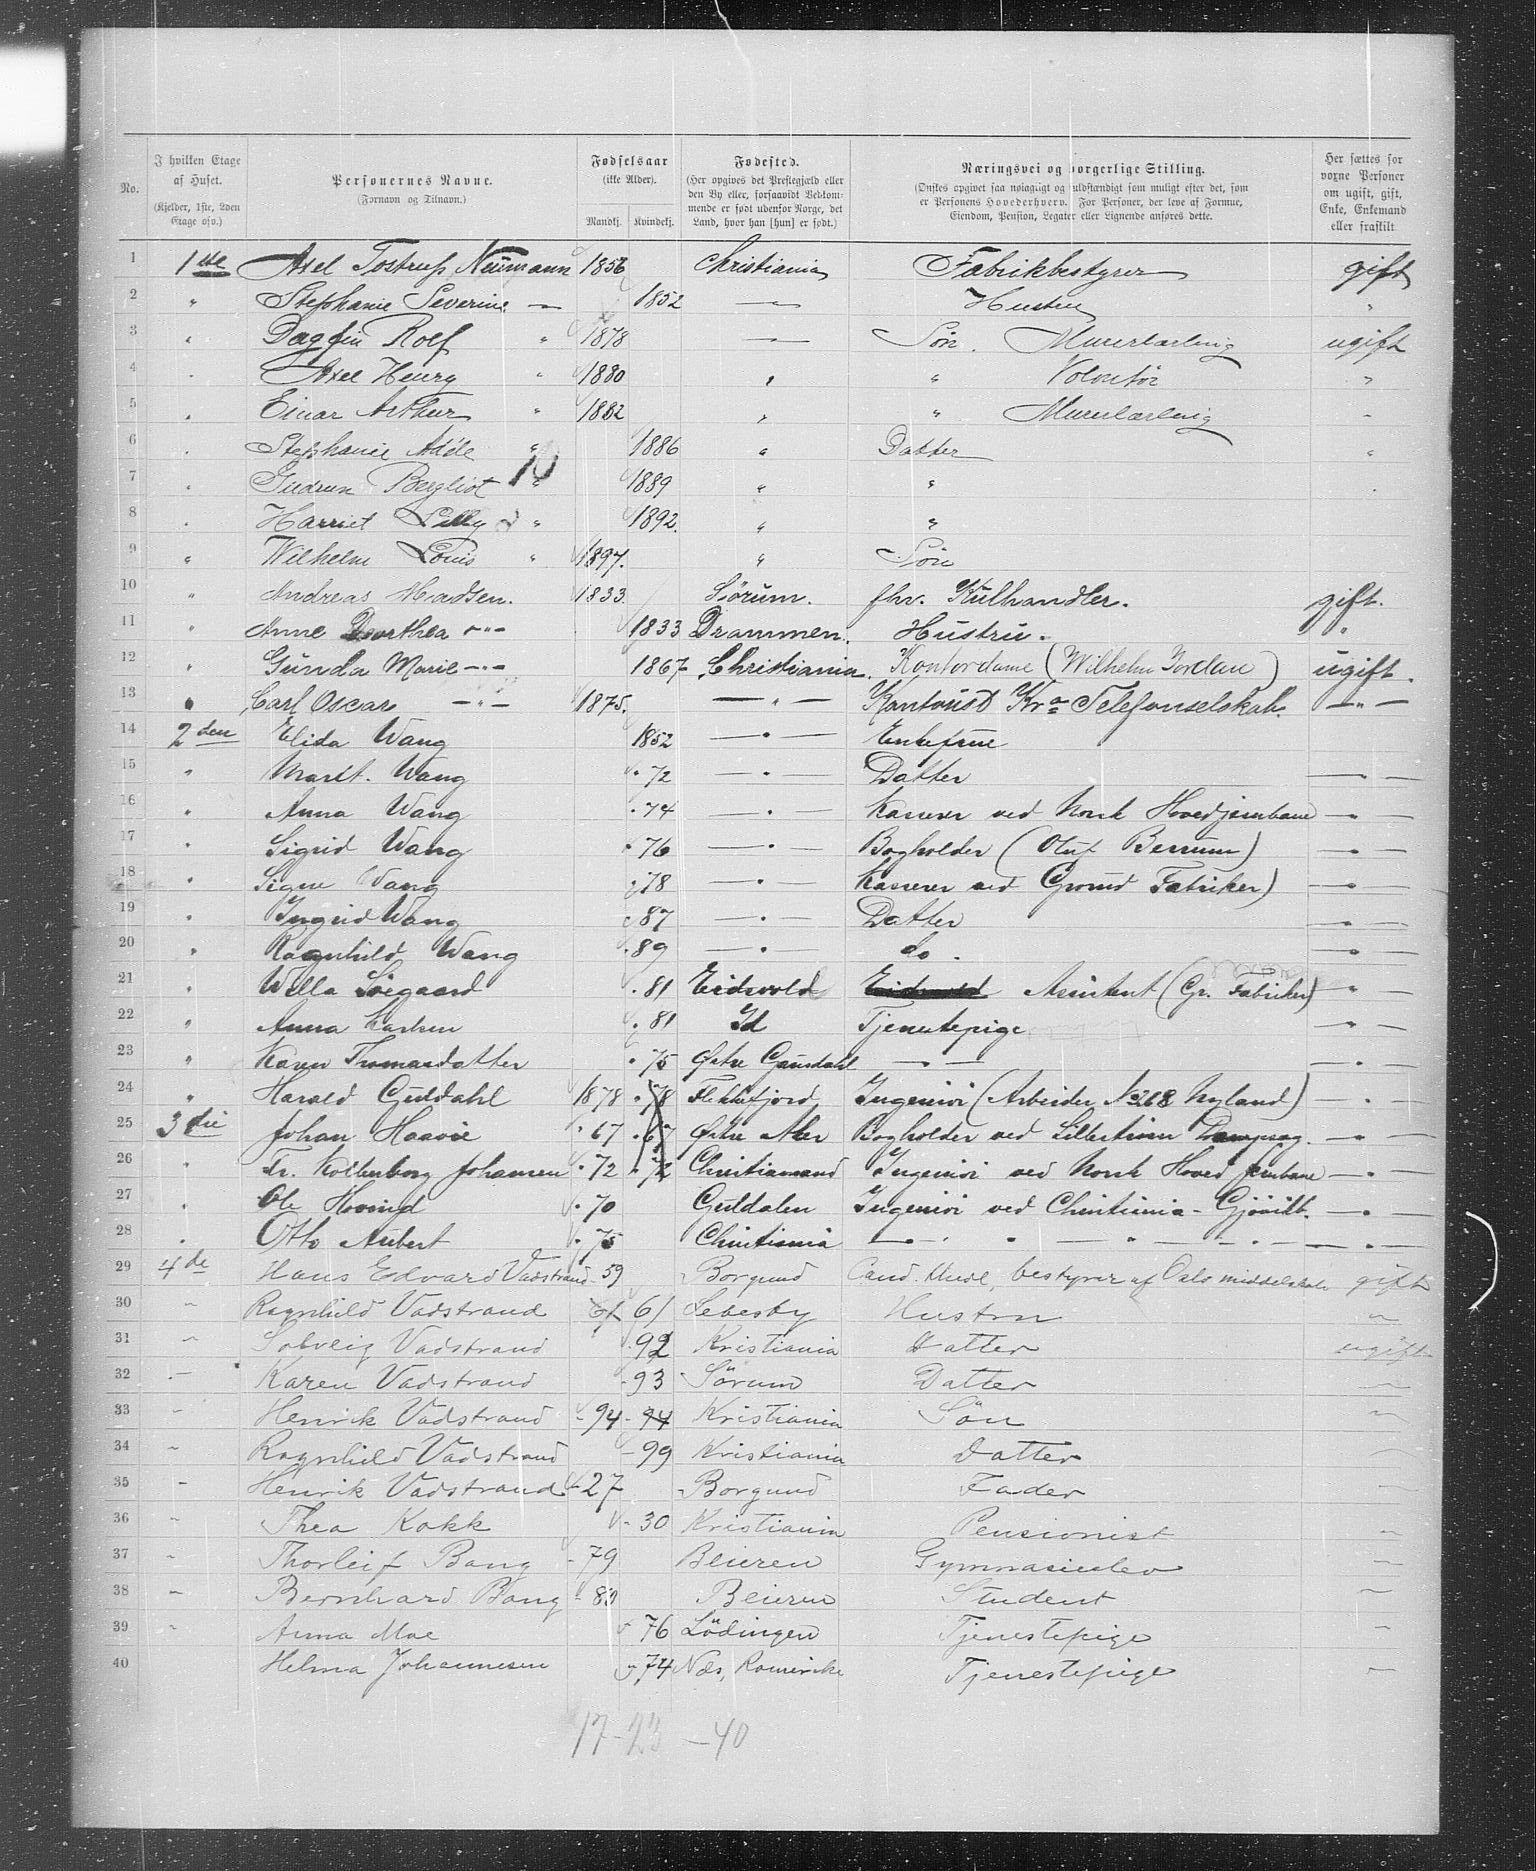 No. | I hvilken Etage af Huset. (Kjelder, 1ste, 2den Etage osv.) | Personernes Navne. (Fornavn og Tilnavn.) | Fødselsaar (ikke Alder). Mandkj. Kvindekj. | Fødested. (Her opgives det Prestegjæld eller den By eller, forsaavidt Vedkommende er født udenfor Norge, det Land, hvor han [hun] er født.) | Næringsvei og borgerlige Stilling. (Ønskes opgivet saa nøiagtigt og fuldstændigt som muligt efter det, som er Personens Hovederhverv. For Personer, der leve af Formue, Eiendom, Pension, Legater eller Lignende anføres dette.) | Her sættes for voxne Personer om ugift, gift, Enke, Enkemand eller fraskilt
1 1ste Axel Tostrup Neumann 1856 Christiania Fabrikbestyrer gift
2 " Stephanie Severine — 1852 — Hustru "
3 " Dagfin Rolf " 1878 — Søn. Murerlærling ugift
4 " Axel Henry " 1880 " " Volontør "
5 " Einar Arthur " 1882 " " Murerlærling "
6 " Stephanie Adéle " 1886 " Datter "
7 " Gudrun Bergliot " 1889 " "
8 " Harriet Lilly " 1892. " "
9 " Wilhelm Louis " 1897. " Søn
10 " Andreas Madsen. 1833. Sørum. fhv. Kulhandler. gift.
11 " Anne Dorthea —"— 1833 Drammen. Hustru. "
12 " Gunda Marie —"— 1867 Christiania. Kontordame (Wilhelm Jordan) ugift.
13 " Carl Oscar —"— 1875. —"— Kontorist Kra Telefonselskab. —"—
14 2den Elida Wang 1852 —"— Enkefrue
15 " Margt. Wang " 72 —"— Datter —"—
16 " Anna Wang " 74 —"— Kasserer ved Norsk Hovedjernbane —"—
17 " Sigrid Wang " 76 —"— Bogholder (Oluf Berrum) —"—
18 " Signe Wang " 78 —"— Kasserer ved Grorud Fabriker) —"—
19 " Ingrid Wang " 87 —"— Datter —"—
20 " Ragnhild Wang " 89 —"— Do. —"—
21 " Willa Siegaard " 81 Eidsvold Eidsvold Assistent (Gr. Fabriker) "
22 " Anna Larsen " 81 Id Tjenestepige —"—
23 " Karen Thomasdatter " 75 Østre Gausdahl —"— —"—
24 " Harald Guldahl 1878 " 78 Flekkefjord Ingeniør (Arbeider No 268 Nyland) —"—
25 3die Johan Haavie " 67 " 67 Østre Aker Bogholder ved Lillestrøm Dampsag. —"—
26 " Fr. Koltenborg Johansen " 72 " 72 Christiansand Ingeniør ved Norsk Hoved jernbane —"—
27 " Ole Hovind " 70 Guldalen Ingeniør ved Christiania - Gjøvikb. —"—
28 " Otto Aubert " 75 Christiania —"— " " —"—
29 4de Hans Edvard Vadstrand - 59 Borgund Cand. theol, bestyrer af Oslo middelskole gift
30 " Ragnhild Vadstrand 61 61 Lebesby Hustru "
31 " Solveig Vadstrand - 92 Kristiania Datter ugift
32 — Karen Vadstrand - 93 Sörum Datter "
33 " Henrik Vadstrand - 94 - 94 Kristiania Sön "
34 " Ragnhild Vadstrand - 99 Kristiania Datter
35 " Henrik Vadstrand - 27 Borgund Fader
36 " Thea Kokk - 30 Kristiania Pensionist "
37 " Thorleif Bang - 79 Beieren Gymnasieelev "
38 " Bernhard Bang - 80 Beieren Student "
39 " Anna Moe - 76 Lödingen Tjenestepige "
40 Helma Johannesen - 74 Nes, Romerike Tjenestepige "
17 - 23 - 40